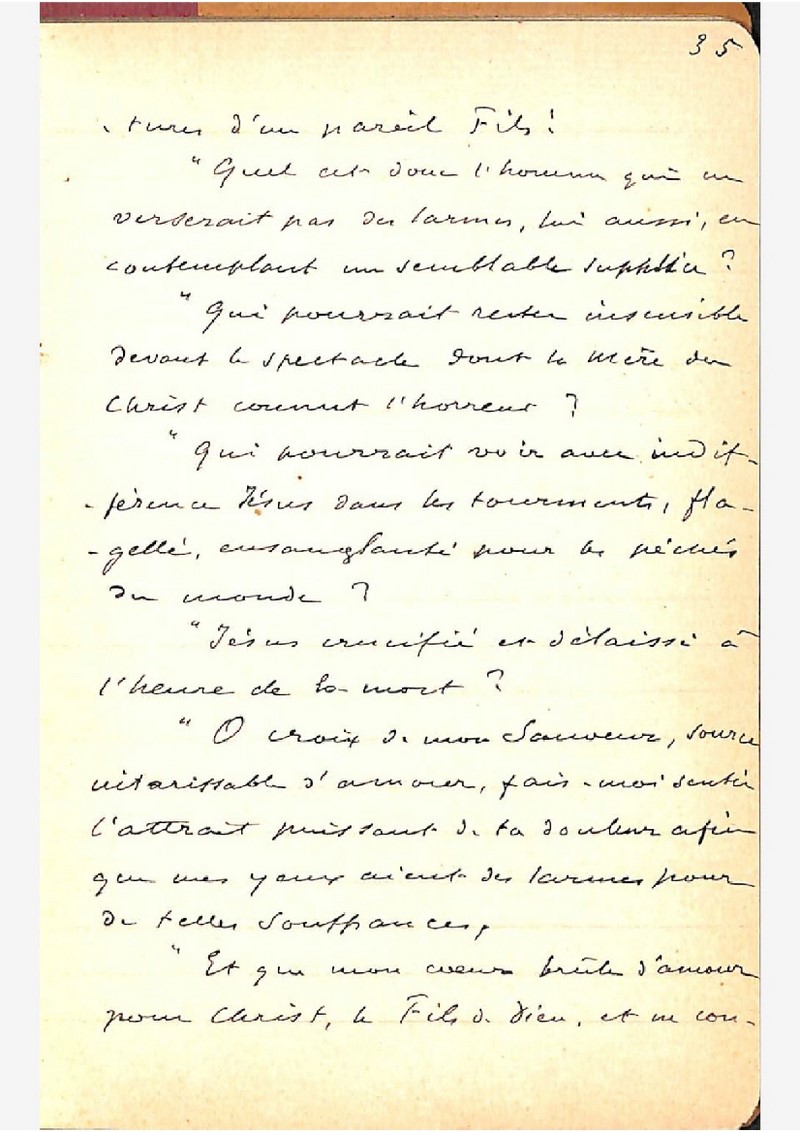 35
- tures d'un pareil Fils !
" Quel est donc l'homme qui ne
verserait pas des larmes, lui aussi, en
contemplant un semblable supplice ?
" Qui pourrait rester insensible
devant le spectacle dont la Mère du
Christ connut l'horreur ?
" Qui pourrait voir avec indif-
- férence Jésus dans les tourments, fla-
- gellé, ensanglanté pour les péchés
du monde ?
" Jésus crucifié et délaissé à
l'heure de la mort ?
" O croix de mon Sauveur, source
intarissable d'amour, fais-moi sentir
l'attrait puissant de ta douleur afin
que mes yeux aient des larmes pour
de telles souffrances,
" Et que mon coeur brûle d'amour
pour Christ, le Fils de Dieu, et ne con-